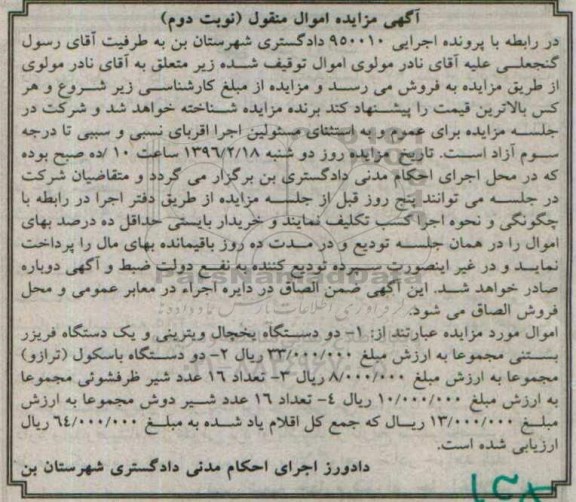 آگهی مزایده اموال منقول (نوبت دوم)
در رابطه با پرونده اجرایی ۹۵۰۰۱۰ دادگستری شهرستان بن به طرفیت آقای رسول
گنجعلی علیه آقای نادر مولوی اموال توقیف شده زیر متعلق به آقای نادر مولوی
از طریق مزایده به فروش می رسد و مزایده از مبلغ کارشناسی زیر شروع و هر
کس بالاترین قیمت را پیشنهاد کند برنده مزایده شناخته خواهد شد و شرکت در
جلسه مزایده برای عموم و به استثنای مسئولین اجرا اقربای نسبی و سببی تا درجه
سوم آزاد است. تاریخ مزایده روز دو شنبه ۱۳۹۶/۲/۱۸ ساعت ۱۰ /ده صبح بوده
که در محل اجرای احکام مدنی دادگستری بن برگزار می گردد و متقاضیان شرکت
در جلسه می توانند پنج روز قبل از جلسه مزایده از طریق دفتر اجرا در رابطه با
چگونگی و نحوه اجرا کسب تکلیف نمایند و خریدار بایستی حداقل ده درصد بهای
اموال را در همان جلسه تودیع و در مدت ده روز باقیمانده بهای مال را پرداخت
نماید و در غیر اینصورت سپرده تودیع کننده به نفع دولت ضبط و آگهی دوباره
صادر خواهد شد. این آگهی ضمن الصاق در دایره اجراء در معابر عمومی و محل
فروش الصاق می شود.
اموال مورد مزایده عبارتند از: ۱- دو دستگاه یخچال ویترینی و یک دستگاه فریزر
بستنی مجموعا به ارزش مبلغ ۳۳/۰۰۰/۰۰۰ ریال ۲- دو دستگاه باسکول (ترازو)
مجموعا به ارزش مبلغ ۸/۰۰۰/۰۰۰ ریال ۳- تعداد ۱۶ عدد شیر ظرفشوئی مجموعا
به ارزش مبلغ ۱۰/۰۰۰/۰۰۰ ریال ۴- تعداد ۱۶ عدد شیر دوش مجموعا به ارزش
مبلغ ۱۳/۰۰۰/۰۰۰ ریال که جمع کل اقلام یاد شده به مبلغ ۶۴/۰۰۰/۰۰۰ ریال
ارزیابی شده است.
دادورز اجرای احکام مدنی دادگستری شهرستان بن